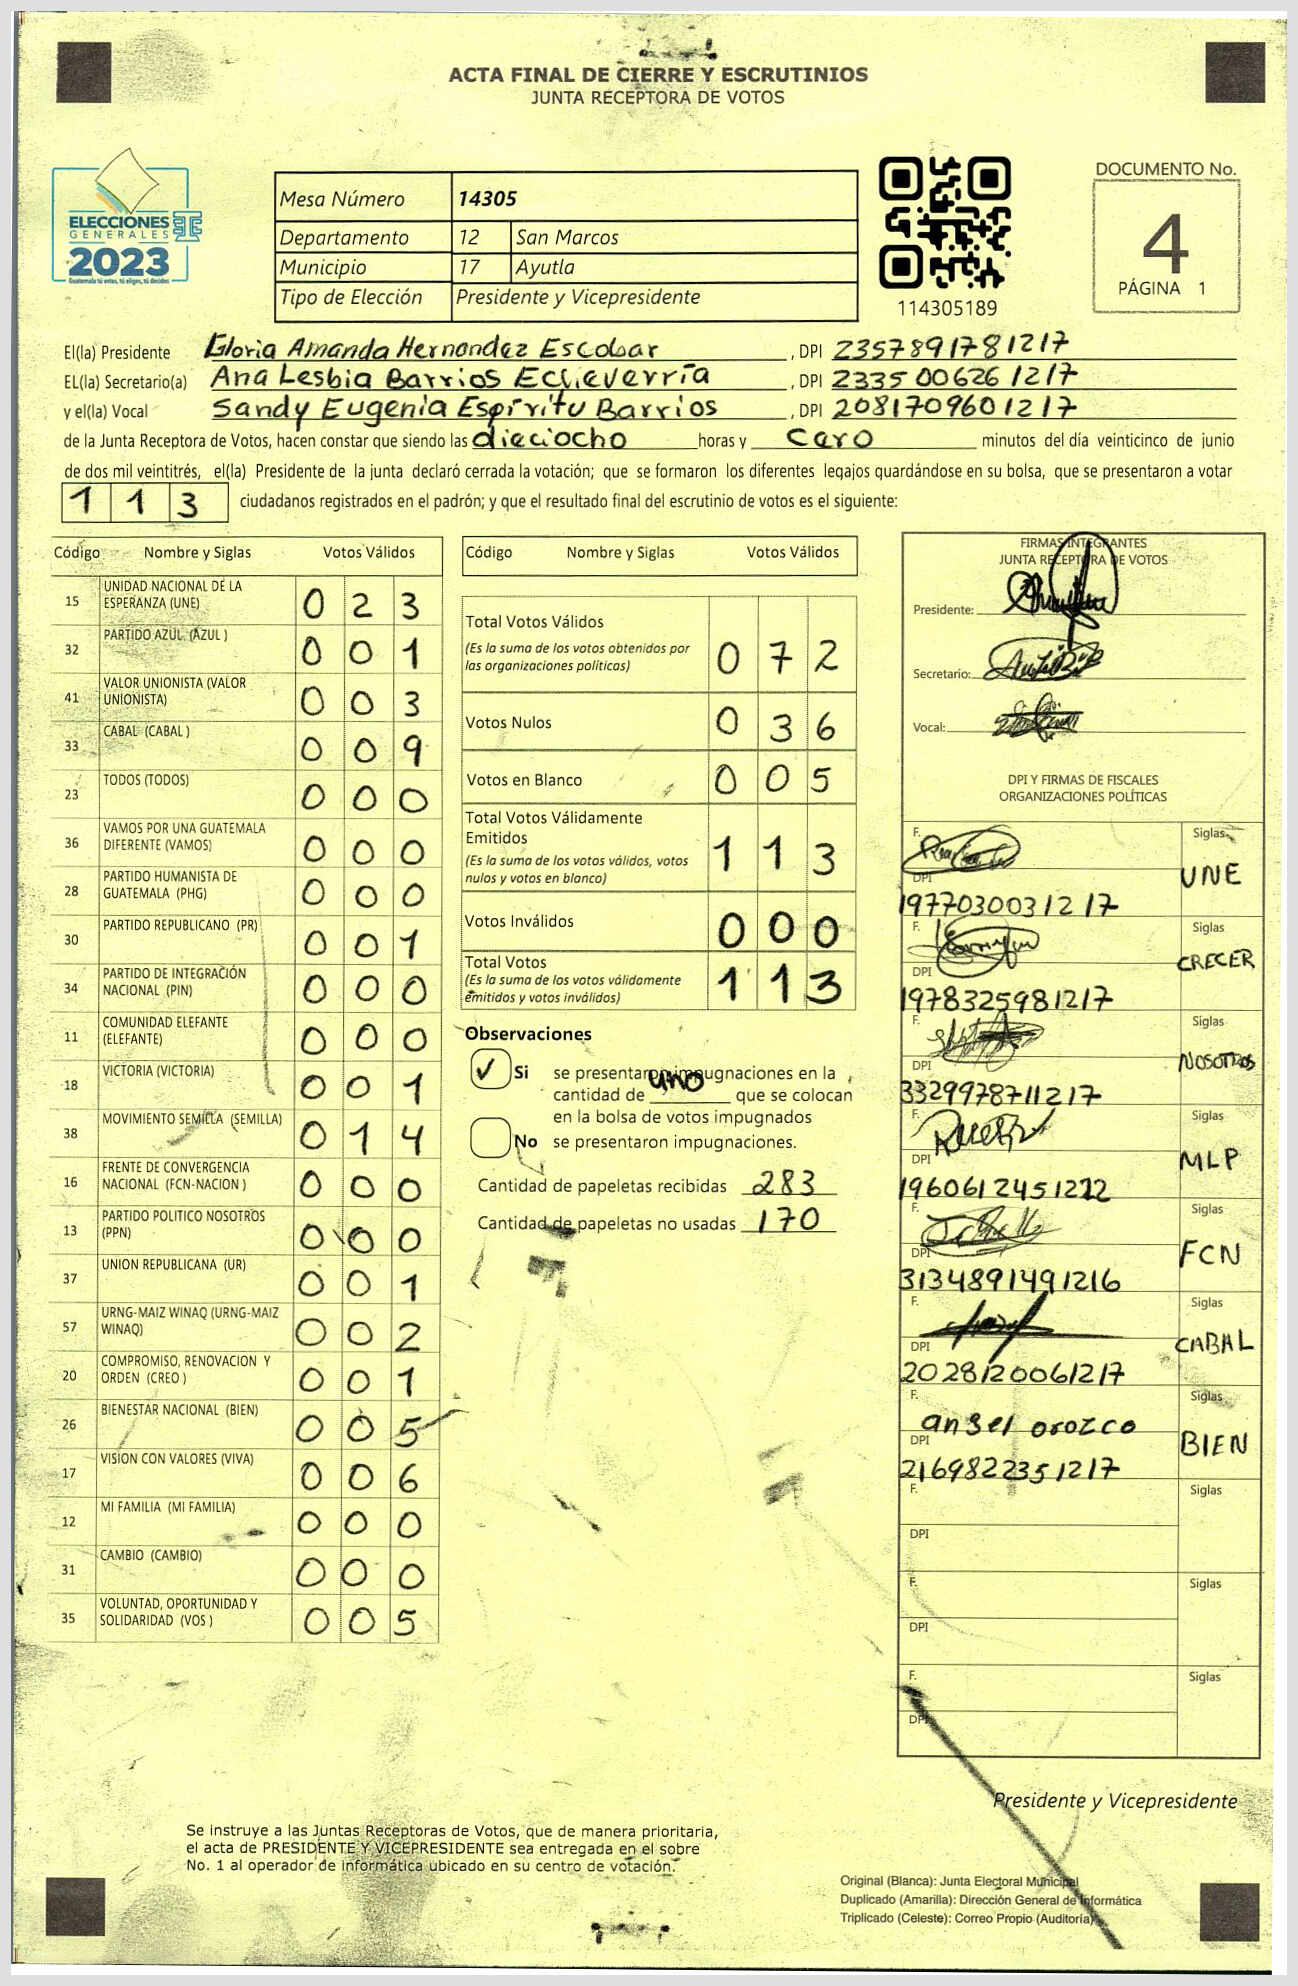 ACTA FINAL DE CIERRE Y ESCRUTINIOS
JUNTA RECEPTORA DE VOTOS
ELECCIONES
GENERALES
2023
Guatemala tú votas, tú eliges, tú decides
Mesa Número 14305
Departamento 12 San Marcos
Municipio 17 Ayutla
Tipo de Elección Presidente y Vicepresidente
114305189
DOCUMENTO No.
4
PÁGINA 1
El(la) Presidente Gloria Amanda Hernandez Escobar, DPI 2357891781217
EL(la) Secretario(a) Ana Lesbia Barrios Echeverría, DPI 2335006261217
y el(la) Vocal Sandy Eugenia Espíritu Barrios, DPI 2081709601217
de la Junta Receptora de Votos, hacen constar que siendo las dieciocho horas y cero minutos del día veinticinco de junio
de dos mil veintitrés, el(la) Presidente de la junta declaró cerrada la votación; que se formaron los diferentes legajos guardándose en su bolsa, que se presentaron a votar
113 ciudadanos registrados en el padrón; y que el resultado final del escrutinio de votos es el siguiente:
Código Nombre y Siglas Votos Válidos
15 UNIDAD NACIONAL DE LA ESPERANZA (UNE) 023
32 PARTIDO AZUL (AZUL ) 001
41 VALOR UNIONISTA (VALOR UNIONISTA) 003
33 CABAL (CABAL ) 009
23 TODOS (TODOS) 000
36 VAMOS POR UNA GUATEMALA DIFERENTE (VAMOS) 000
28 PARTIDO HUMANISTA DE GUATEMALA (PHG) 000
30 PARTIDO REPUBLICANO (PR) 001
34 PARTIDO DE INTEGRACIÓN NACIONAL (PIN) 000
11 COMUNIDAD ELEFANTE (ELEFANTE) 000
18 VICTORIA (VICTORIA) 001
38 MOVIMIENTO SEMILLA (SEMILLA) 014
16 FRENTE DE CONVERGENCIA NACIONAL (FCN-NACION ) 000
13 PARTIDO POLITICO NOSOTROS (PPN) 000
37 UNION REPUBLICANA (UR) 001
57 URNG-MAIZ WINAQ (URNG-MAIZ WINAQ) 002
20 COMPROMISO, RENOVACION Y ORDEN (CREO ) 001
26 BIENESTAR NACIONAL (BIEN) 005
17 VISION CON VALORES (VIVA) 006
12 MI FAMILIA (MI FAMILIA) 000
31 CAMBIO (CAMBIO) 000
35 VOLUNTAD, OPORTUNIDAD Y SOLIDARIDAD (VOS ) 005
Código Nombre y Siglas Votos Válidos
Total Votos Válidos 072
(Es la suma de los votos obtenidos por
las organizaciones políticas)
Votos Nulos 036
Votos en Blanco 005
Total Votos Válidamente
Emitidos 113
(Es la suma de los votos válidos, votos
nulos y votos en blanco)
Votos Inválidos 000
Total Votos 113
(Es la suma de los votos válidamente
emitidos y votos inválidos)
Observaciones
✓ Si se presentaron impugnaciones en la
cantidad de uno que se colocan
en la bolsa de votos impugnados
No se presentaron impugnaciones.
Cantidad de papeletas recibidas 283
Cantidad de papeletas no usadas 170
FIRMAS INTEGRANTES
JUNTA RECEPTORA DE VOTOS
Presidente:
Secretario:
Vocal:
DPI Y FIRMAS DE FISCALES
ORGANIZACIONES POLÍTICAS
F. Siglas
UNE
DPI
1977030031217
F. Siglas
CRECER
DPI
1978325981217
F. Siglas
NOSOTROS
DPI
3329978711217
F. Siglas
MLP
DPI
1960612451222
F. Siglas
FCN
DPI
3134891491216
F. Siglas
CABAL
DPI
2028120061217
F. Siglas
angel orozco
BIEN
DPI
2169822351217
F. Siglas
DPI
F. Siglas
DPI
F. Siglas
DPI
Presidente y Vicepresidente
Se instruye a las Juntas Receptoras de Votos, que de manera prioritaria,
el acta de PRESIDENTE Y VICEPRESIDENTE sea entregada en el sobre
No. 1 al operador de informática ubicado en su centro de votación.
Original (Blanca): Junta Electoral Municipal
Duplicado (Amarilla): Dirección General de Informática
Triplicado (Celeste): Correo Propio (Auditoría)